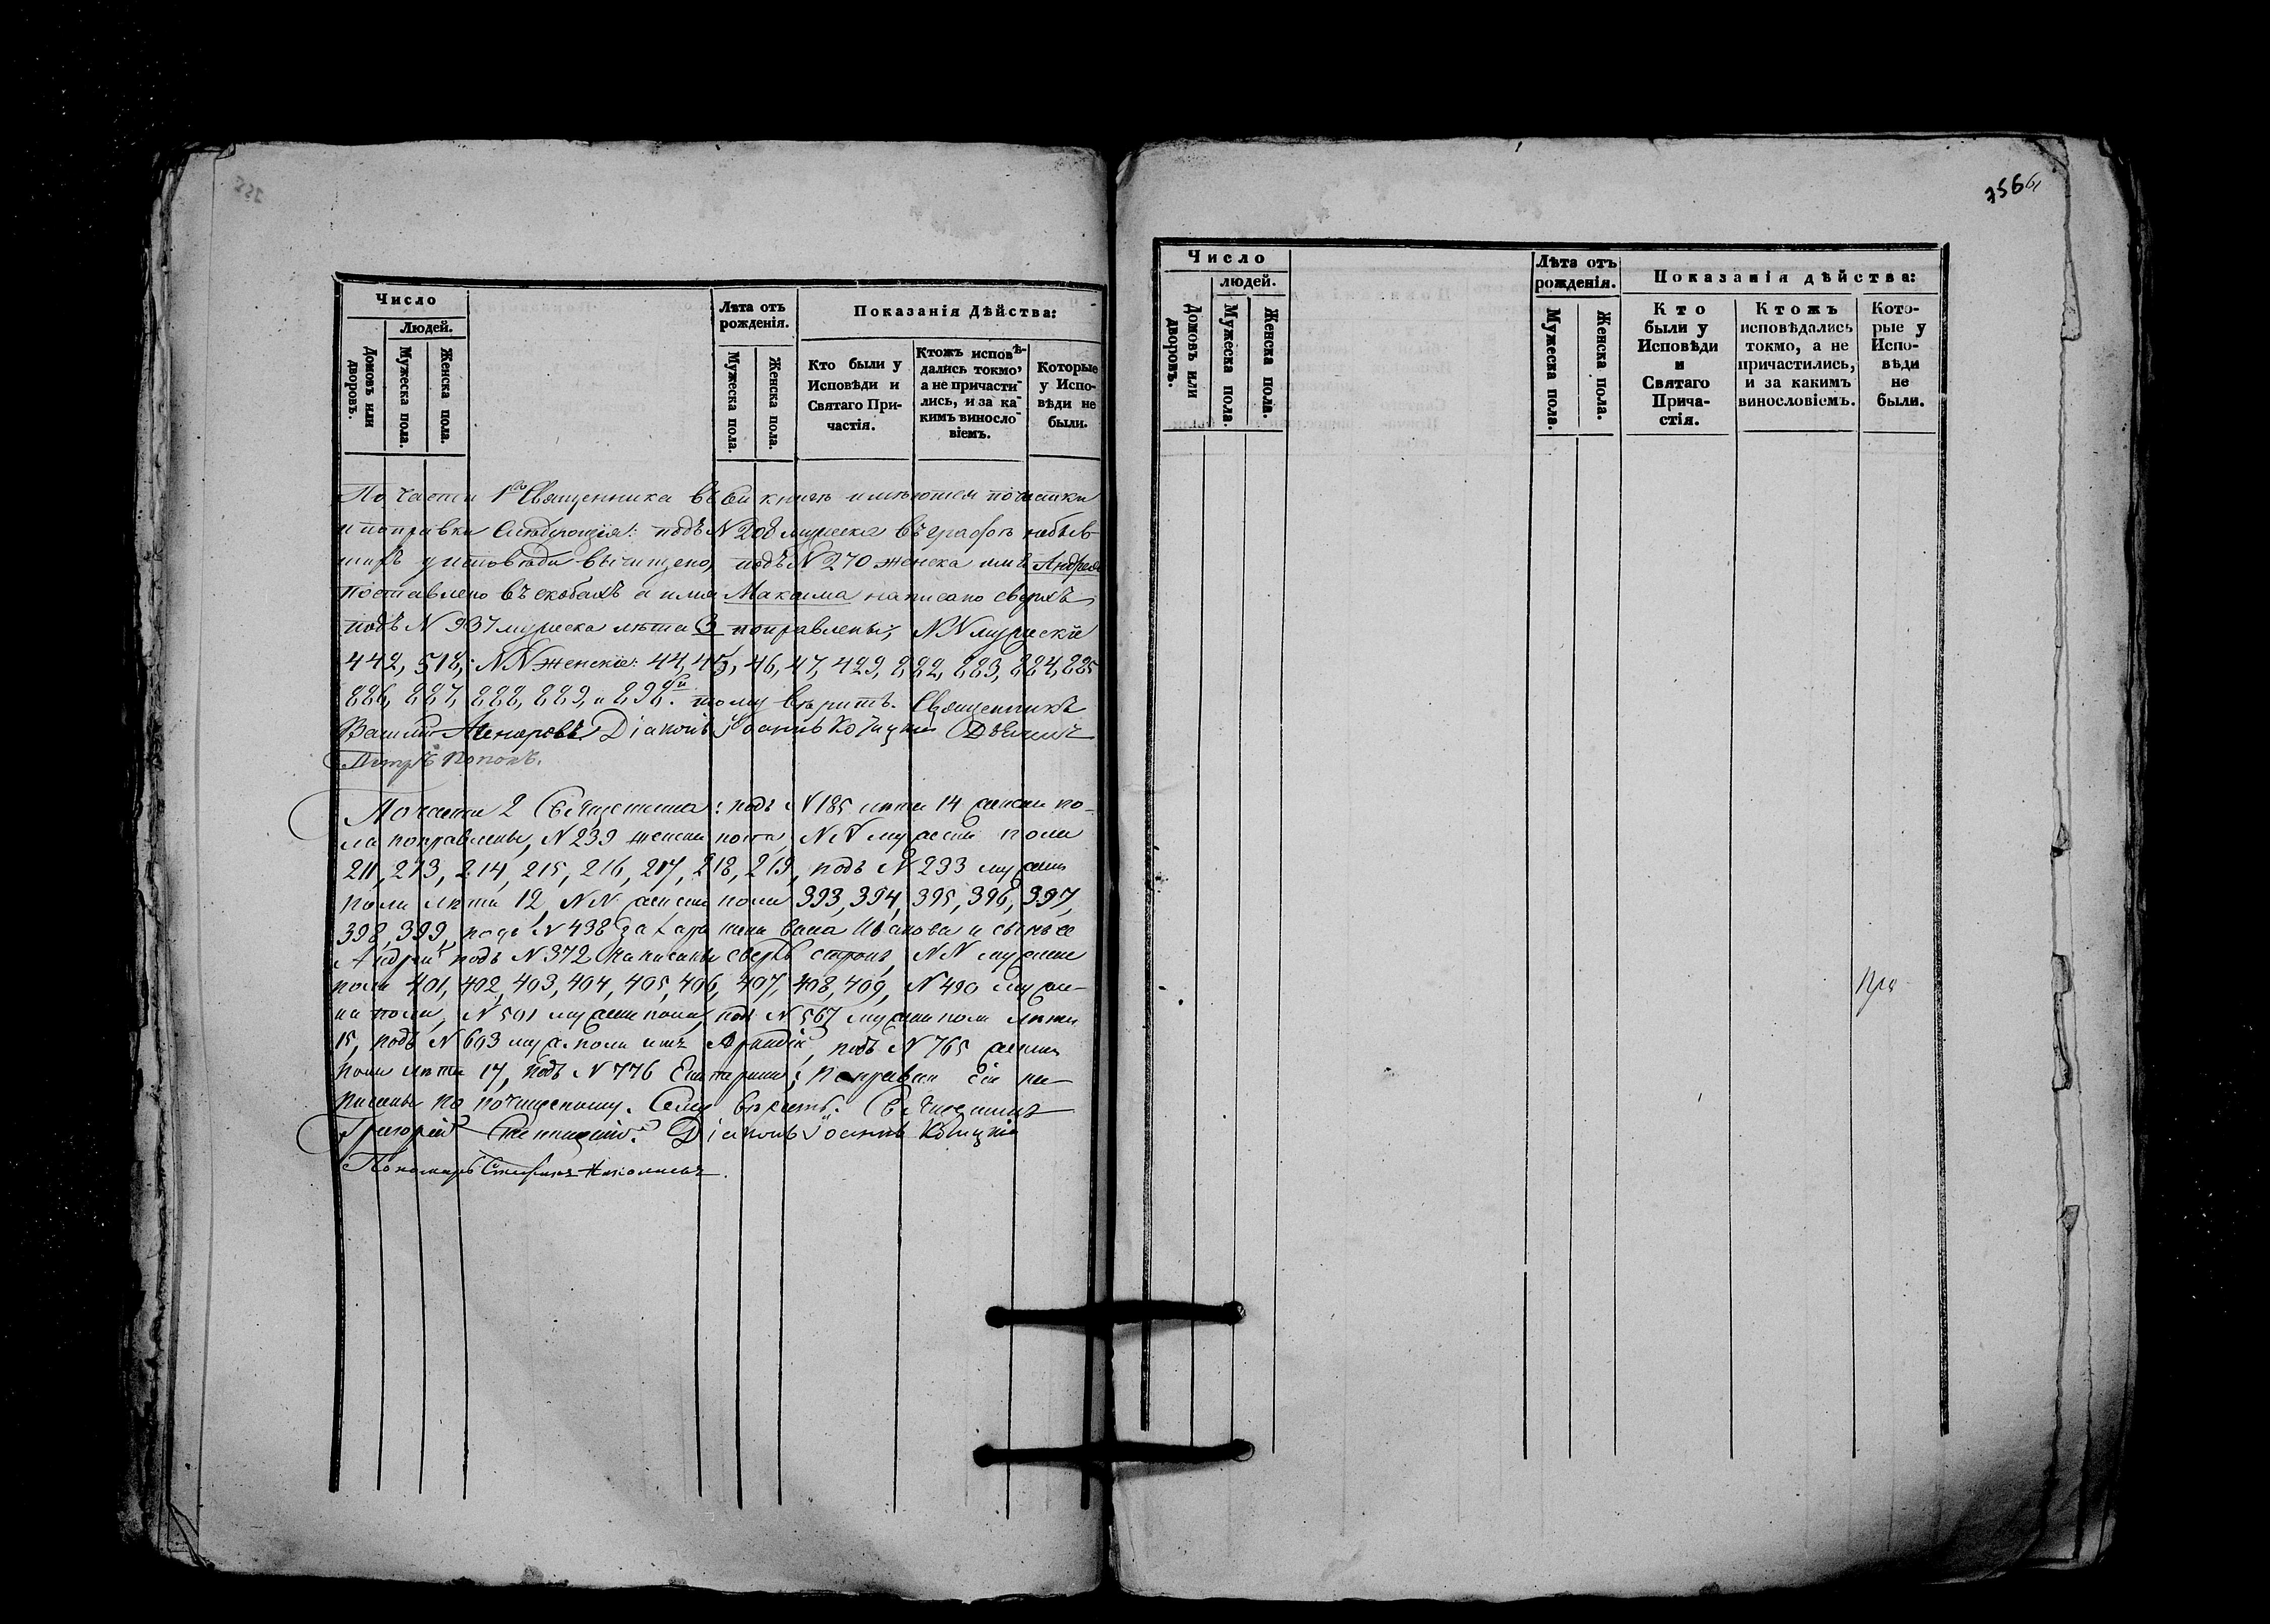 Число
Людей.
Домовъ или дворовъ.
Мужеска пола.
Женска пола.
Лѣта отъ
рожденія.
Мужеска пола.
Женска пола.
Показанія Дѣйства:
Кто были у
Исповѣди и
Святаго При-
частія.
Ктожъ исповѣ-
дались токмо,
а не причасти-
лись, и за ка-
кимъ виносло-
віемъ.
Которые
у Испо-
вѣди не
были.
По части 1го Священника въ сей книгѣ имѣются почистки
и поправки слѣдующія: подъ N 208 мужеска въ графѣ небыв-
шихъ у исповѣди вычищено, подъ N 270 женска имя Андрея
поставлено въ скобахъ а имя Максима написано сверхъ,
подъ N 937 мужеска лѣта 3 поправлены, NN мужескіе
442, 518, NN женскіе: 44, 45, 46, 47, 429, 882, 883, 884, 885
886, 887, 888, 889, и 898й. тому вѣрить. Священникъ
Василій Діаконъ Іоаннъ Дьячекъ
Петръ Поповъ.
По части 2 Священника: подъ N 185 лѣта 14 женска по-
ла поправлены, N 239 женска пола, NN мужеска пола
211, 213, 214, 215, 216, 217, 218, 219, подъ N 233 мужеска
пола лѣта 12, NN женска пола 393, 394, 395, 396, 397,
398, 399, подъ N 438 Иванова и сынъ ее
Андрей подъ N 372 написаны сверхъ строкъ, NN мужеска
пола 401, 402, 403, 404, 405, 406, 407, 408, 409, N 490 муже-
ка пола, N 501 мужеска пола, под N 567 мужеска пола лѣта
15, подъ N 603 муж. пола имя подъ N 765 женска
пола лѣта 17, подъ N 776 Екатерина; поправки сіи на-
писаны по почищеному. Сему вѣрить. Священникъ
Григорій Діаконъ Іоаннъ
Пономарь Стефанъ
356
Число
людей.
Домовъ или дворовъ.
Мужеска пола.
Женска пола.
Лѣта отъ
рожденія.
Мужеска пола.
Женска пола.
Показанія дѣйства:
Кто
были у
Исповѣди
и
Святаго
Прича-
стія.
Ктожъ
исповѣдались
токмо, а не
причастились,
и за какимъ
винословіемъ.
Кото-
рые у
Испо-
вѣди
не
были.